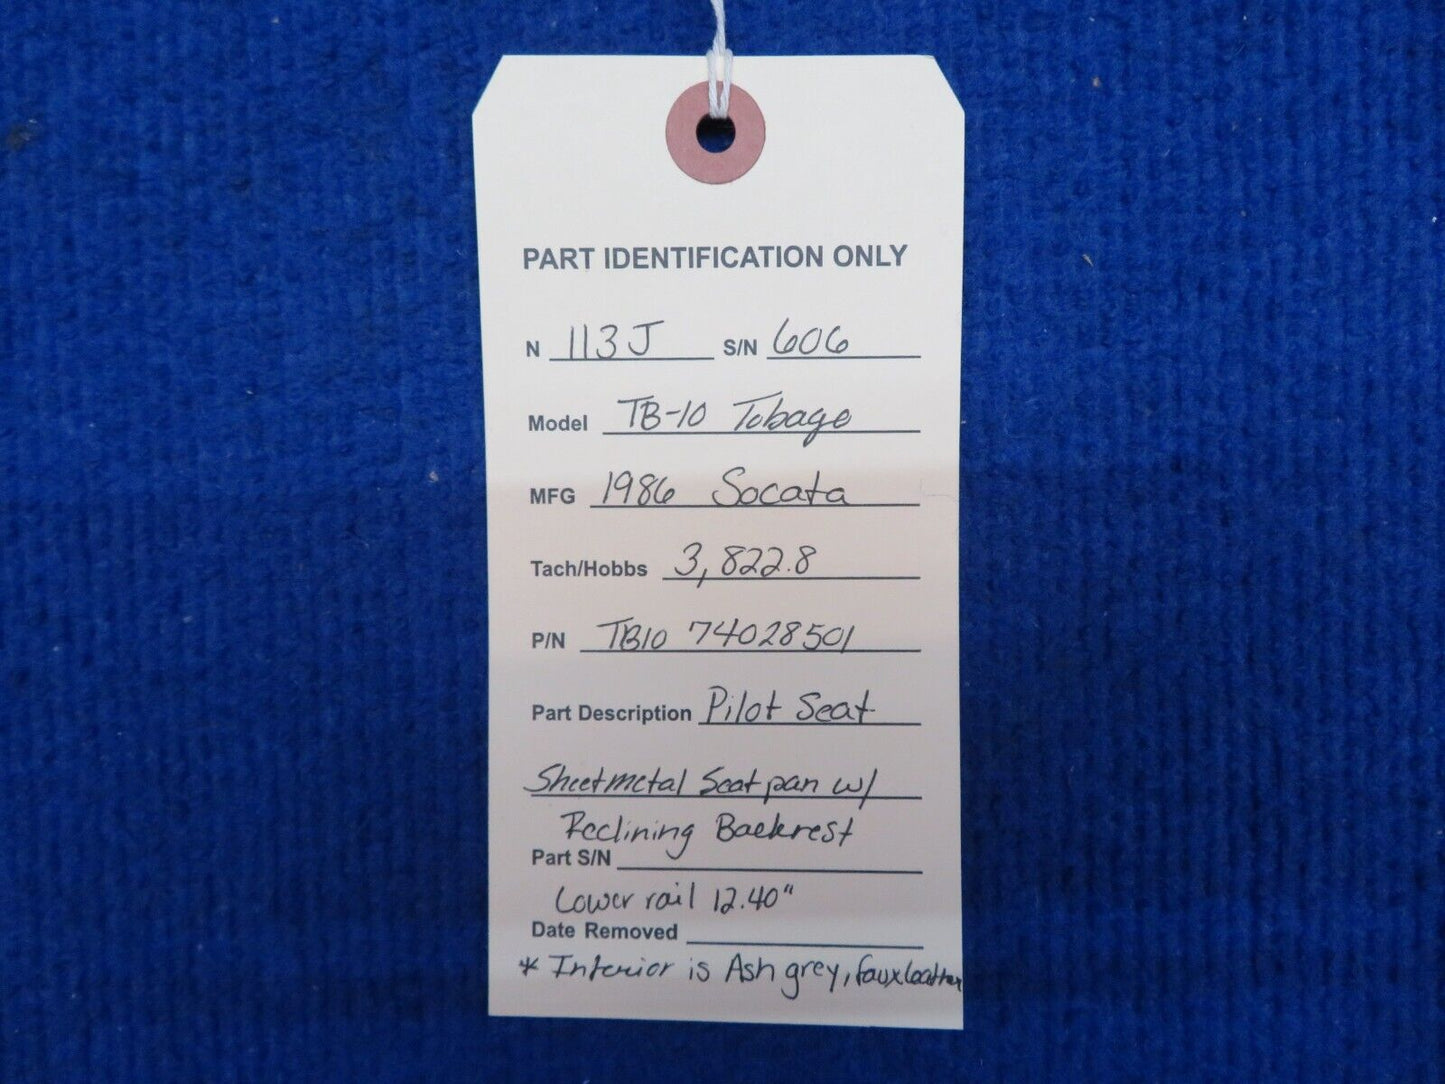 PART IDENTIFICATION ONLY
N 113J S/N 606
Model TB-10 Tobago
MFG 1986 Socata
Tach/Hobbs 3,822.8
P/N TB10 74028501
Part Description Pilot Seat
Sheetmetal Seat pan w/
Reclining Backrest
Part S/N
Lower rail 12.40"
Date Removed
* Interior is Ash grey, faux leather